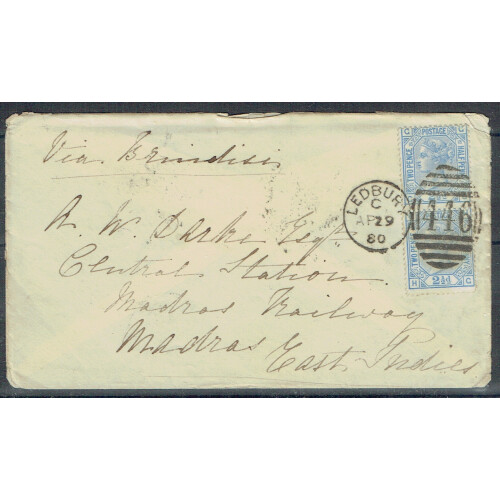 Via Brindisi
A. W. Darke Esqre
Central Station
Madras Railway
Madras
East Indies
LEDBURY
C
AP29
80
446
POSTAGE
TWO PENCE
C
H
2½d
C